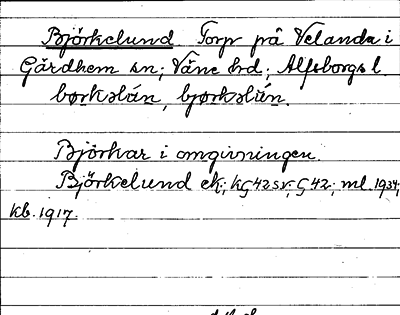 Björkelund Torp på Velanda i
Gärdhem sn; Väne hrd; Älfsborgs l.
børkəlún, bjørkəlún.
Björkar i omgivningen.
Björkelund ek; kG42sv; G42; ml. 1934;
kb. 1917.